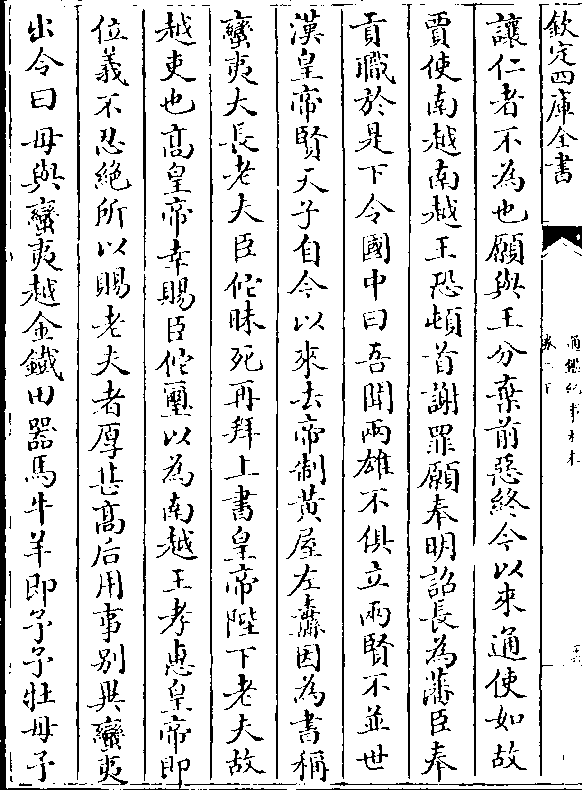 欽定四庫全書
讓仁者不為也願與王分棄前惡終今以來通使如故
賈使南越南越王恐頓首謝罪願奉明詔長為藩臣奉
貢職於是下令國中曰吾聞兩雄不俱立兩賢不並世
漢皇帝賢天子自今以來去帝制黃屋左纛因為書稱
蠻夷大長老夫臣佗昧死再拜上書皇帝陛下老夫故
越吏也高皇帝幸賜臣佗璽以為南越王孝惠皇帝即
位義不忍絶所以賜老夫者厚甚高后用事别異蠻夷
出令曰毋與蠻夷越金鐵田器馬牛羊即予予牡毋予